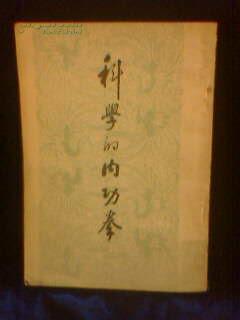 科學的内功拳